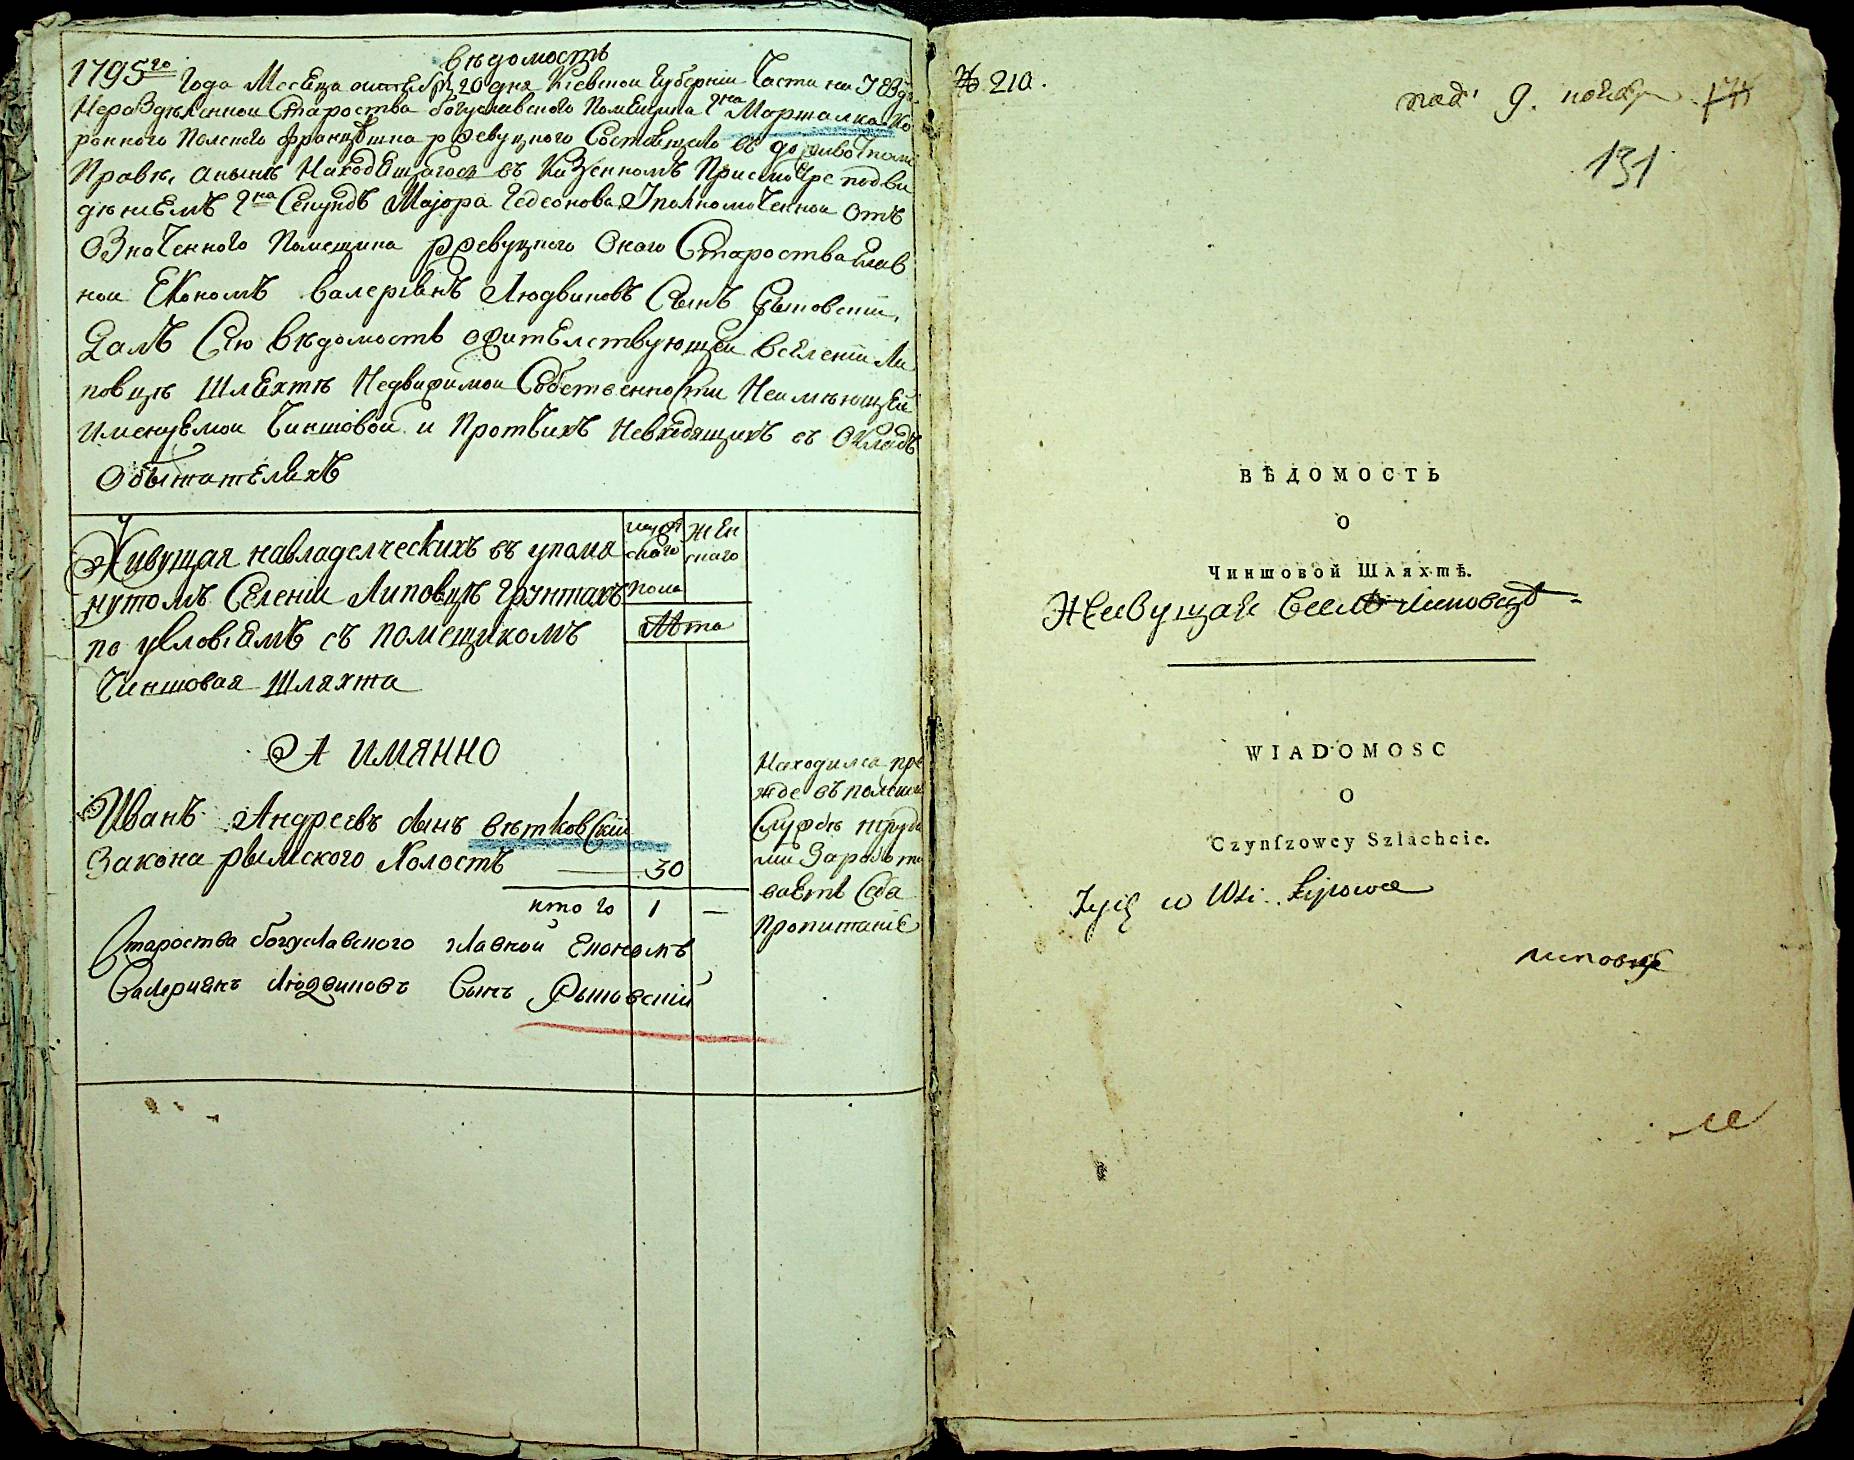 Вѣдомость
1795го Года Месеца октебря 20 дня Киевской Губернии Части на Уезды
Нераздѣленной Староства богуславского Помещика Гна Маршалка Ко
ронного Полского францѣшка ржевуцкого Состоящего въ доживотномъ
Правѣ, анынѣ Находящагося въ Казенномъ Присмотре подви
дѣниемъ Гна Секундъ Маіора Гедеонова Уполномоченной отъ
Означенного Помещика ржевуцкого Оного Староства Глав
ной Економъ Валериянъ Людвиковъ Сынъ
Далъ Сию Вѣдомость ожителствующей вселении Ли
повцѣ Шляхтѣ Недвижимои Собственности Неимѣющей
Именуемои Чиншовой и Протчихъ Невходящихъ въ Окладъ
Обывателяхъ
Живущая навладелческихъ въ упомя
нутомъ Селении Липовцѣ Грунтахъ
по условиямъ съ помещикомъ
Чиншовая Шляхта
мужеского
пола
женского
Лѣта
А имянно
Иванъ Андреевъ сынъ вѣтковский
Закона рымского Холостъ 30
итого 1 —
Находился пре
жде въ полской
Службѣ труда
ми Зароботи
ваетъ Себѣ
Пропитание
Староства богуславского главной Економъ
Валериянъ Людвиковъ Сынъ
№ 210.
под. 9. ноября
131
ВѢДОМОСТЬ
О
Чиншовой Шляхтѣ.
Живущая Вселѣ Липовцѣ
WIADOMOSC
O
Czynſzowey Szlachcie.
Żyią w Wsi Lipowce
Липовцѣ